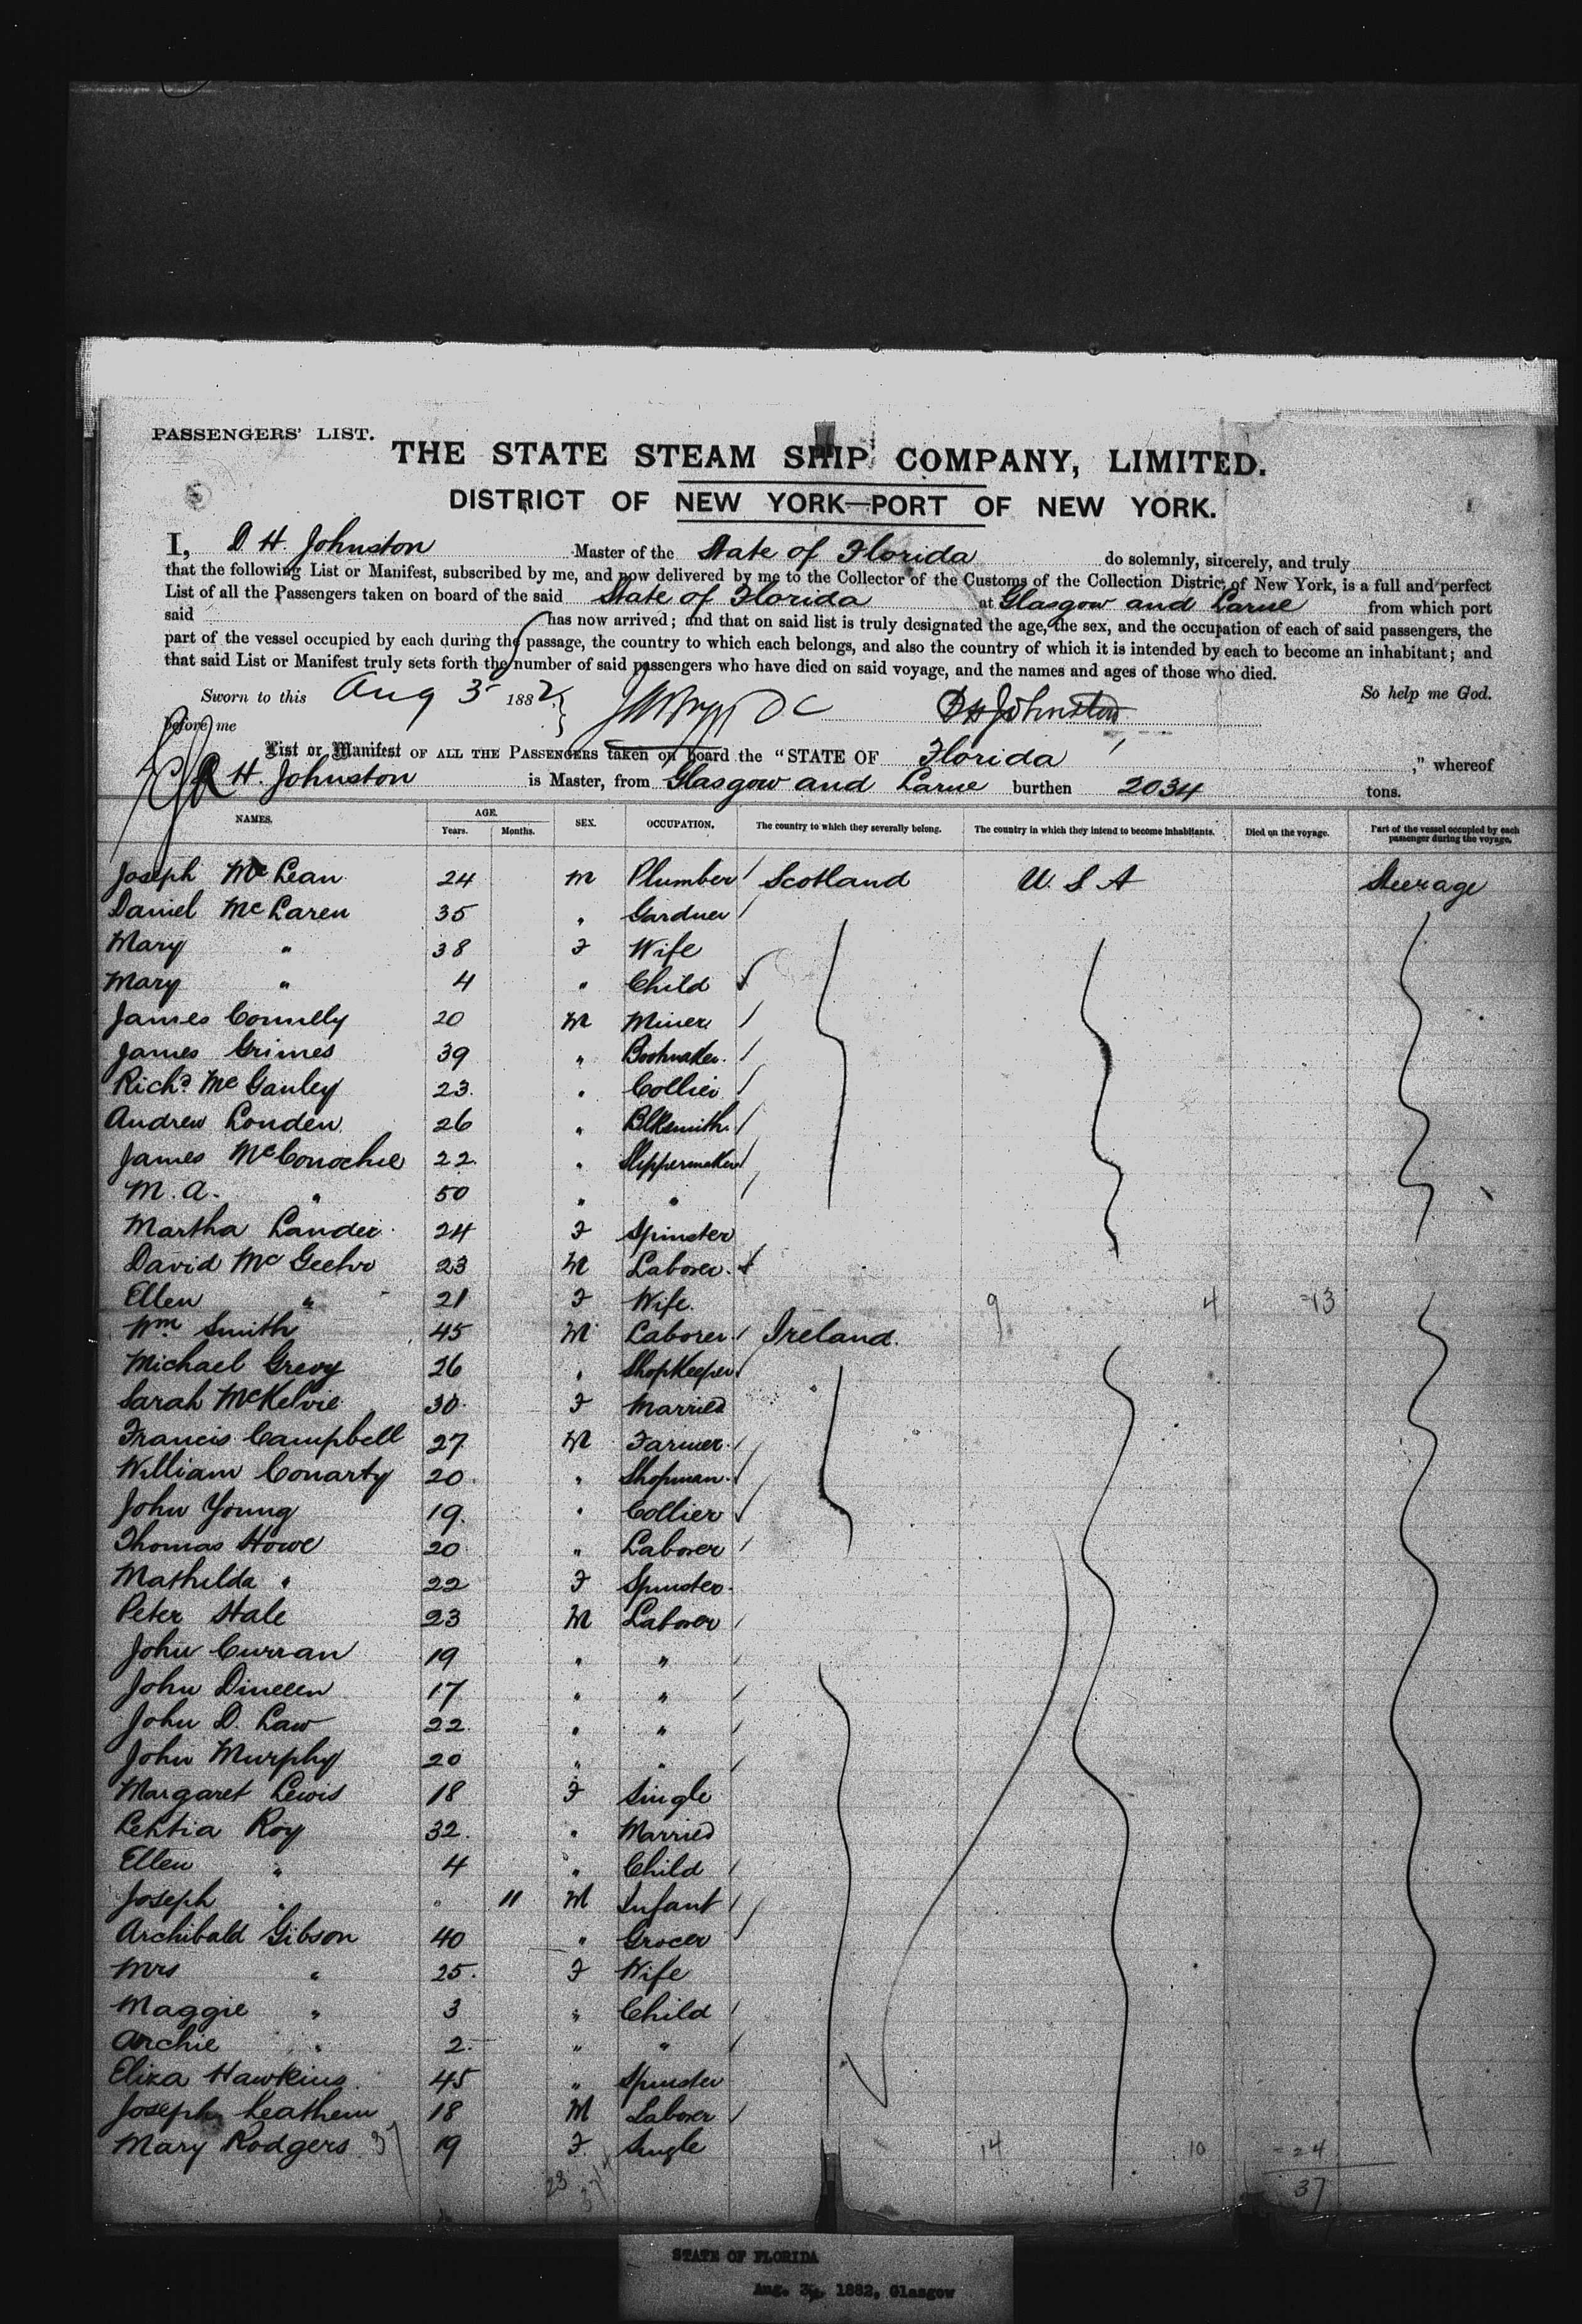 PASSENGERS' LIST.
THE STATE STEAM SHIP COMPANY, LIMITED.
DISTRICT OF NEW YORK—PORT OF NEW YORK.
I, D H. Johnston Master of the State of Florida do solemnly, sincerely, and truly
that the following List or Manifest, subscribed by me, and now delivered by me to the Collector of the Customs of the Collection District of New York, is a full and perfect
List of all the Passengers taken on board of the said State of Florida at Glasgow and Larne from which port
said has now arrived; and that on said list is truly designated the age, the sex, and the occupation of each of said passengers, the
part of the vessel occupied by each during the passage, the country to which each belongs, and also the country of which it is intended by each to become an inhabitant; and
that said List or Manifest truly sets forth the number of said passengers who have died on said voyage, and the names and ages of those who died.
Sworn to this Aug 3 1882 So help me God.
before me D H Johnston
List or Manifest OF ALL THE PASSENGERS taken on board the "STATE OF Florida ," whereof
H. Johnston is Master, from Glasgow and Larne burthen 2034 tons.
NAMES. AGE. Years. Months. SEX. OCCUPATION. The country to which they severally belong. The country in which they intend to become inhabitants. Died on the voyage. Part of the vessel occupied by each passenger during the voyage.
Joseph McLean 24 M Plumber Scotland U. S A Steerage
Daniel McLaren 35 " Gardner
Mary " 38 F Wife
Mary " 4 " Child
James Connelly 20 M Miner
James Grimes 39 " Bootmaker.
Richd McGauley 23. " Collier
Andrew Louden 26 " Blksmith.
James McConochie 22. " Slippermaker
M. A. " 50 " "
Martha Lander 24 F Spinster
David McGeehe 23 M Laborer.
Ellen " 21 F Wife. 9 4 =13
Wm Smith 45 M Laborer Ireland.
Michael Grevy 26 " ShopKeeper
Sarah McKelvie 30. F Married
Francis Campbell 27 M Farmer.
William Conarty 20. " Shopman.
John Young 19. " Collier
Thomas Howe 20 " Laborer
Mathilda " 22 F Spinster.
Peter Hale 23 M Laborer
John Curran 19 " "
John Dineen 17 " "
John D. Law 22. " "
John Murphy 20 " "
Margaret Lewis 18 F Single
Letitia Roy 32. " Married
Ellen " 4 " Child
Joseph " " 11 M Infant
Archibald Gibson 40 " Grocer
Mrs " 25. F Wife
Maggie " 3 " Child
Archie " 2. " "
Eliza Hawkins. 45 " Spinster
Joseph Leathem 18 M Laborer
Mary Rodgers 37 19 F. Single 14 10 =24
23 37
STATE OF FLORIDA
Aug. 3, 1882, Glasgow